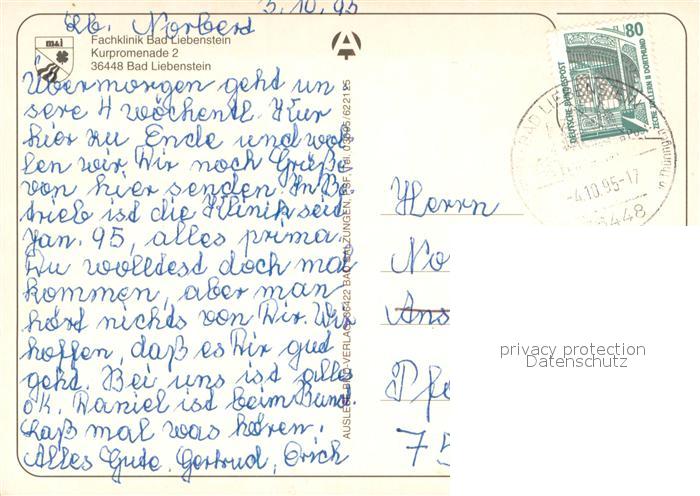 3.10.95
Lb. Norbert
m&i
Fachklinik Bad Liebenstein
Kurpromenade 2
36448 Bad Liebenstein
Übermorgen geht un
sere 4 wöchentl. Kur
hier zu Ende und wol
len wir Dir noch Grüße
von hier senden. In Be
trieb ist die Klinik seit
Jan. 95, alles prima.
Du wolltest doch mal
kommen, aber man
hört nichts von Dir. Wir
hoffen, daß es Dir gut
geht. Bei uns ist alles
ok. Daniel ist beim Bund.
Laß mal was hören.
Alles Gute, Gertrud, Erich
AUSLESE-BILD-VERLAG, 36422 BAD SALZUNGEN, PSF, Tel. 03695/622125
80
DEUTSCHE BUNDESPOST
ZECHE ZOLLERN II DORTMUND
BAD LIEBENSTEIN
-4.10.95-17
36448
Herrn
No
Ans
Pfe
75
privacy protection
Datenschutz